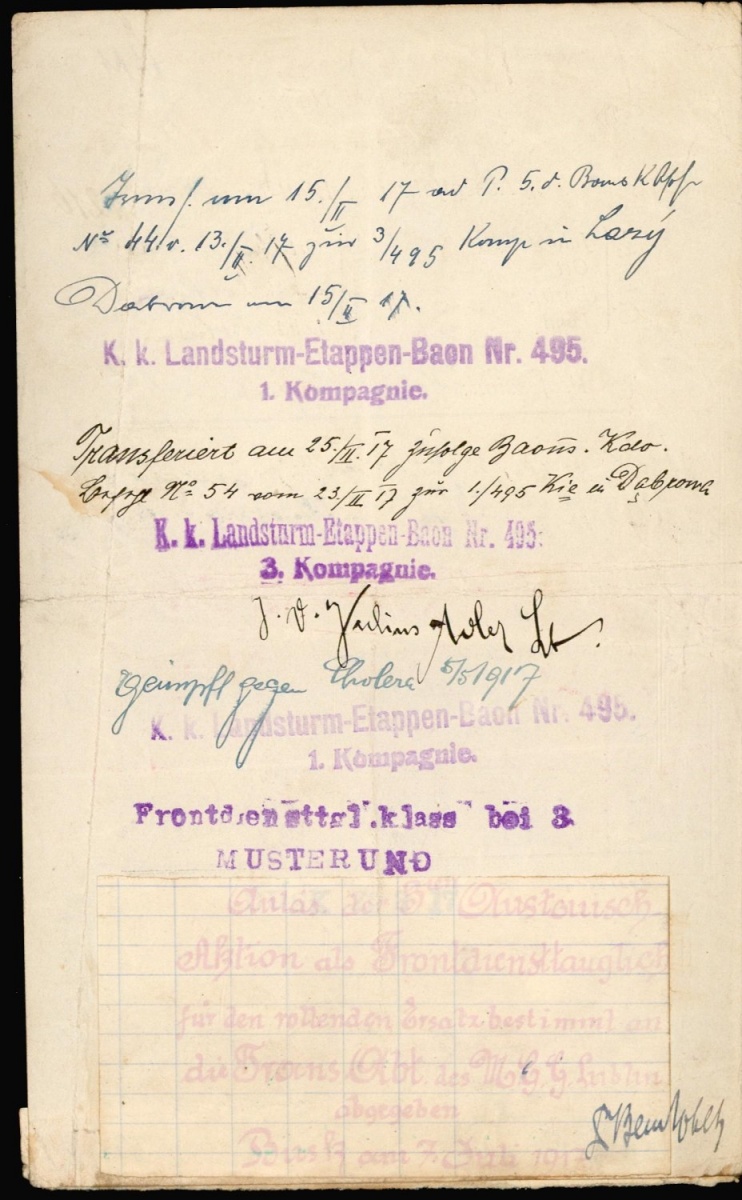 Transf. am 15./II 17 ad P. 5. d. Baons K Bfhl
Nº 44 v. 13./II. 17 zur 3/495 Komp in Lazy
Dabrowa am 15/II 17.
K. k. Landsturm-Etappen-Baon Nr. 495.
1. Kompagnie.
Transferiert am 25./II. 17 zufolge Baons. Kdo.
Nº 54 vom 23/II 17 zur 1./495 Kie in Dąbrowa
K. k. Landsturm-Etappen-Baon Nr. 495.
3. Kompagnie.
J. V. Julius Adler Lt.
geimpft gegen Cholera 5/5/917
K. k. Landsturm-Etappen-Baon Nr. 495.
1. Kompagnie.
Frontdiensttgl.klass bei 3
MUSTERUNG
Anläs. der 3ten Austausch
Aktion als Frontdiensttauglich
für den rollenden Ersatz bestimmt an
die Trans Abt. des M.G.G. Lublin
abgegeben
Busk am 7. Juli